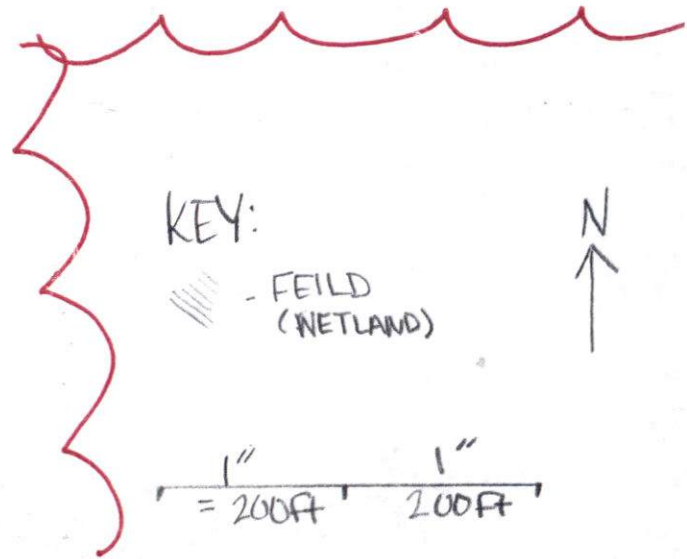 KEY:
N
- FEILD
(WETLAND)
1" 1"
= 200Ft 200Ft